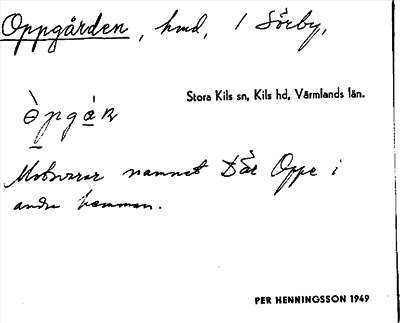 Oppgården, hmd, 1 Sörby,
Stora Kils sn, Kils hd, Värmlands län.
Motsvarar namnet Där Oppe i
andra hemman.
PER HENNINGSSON 1949